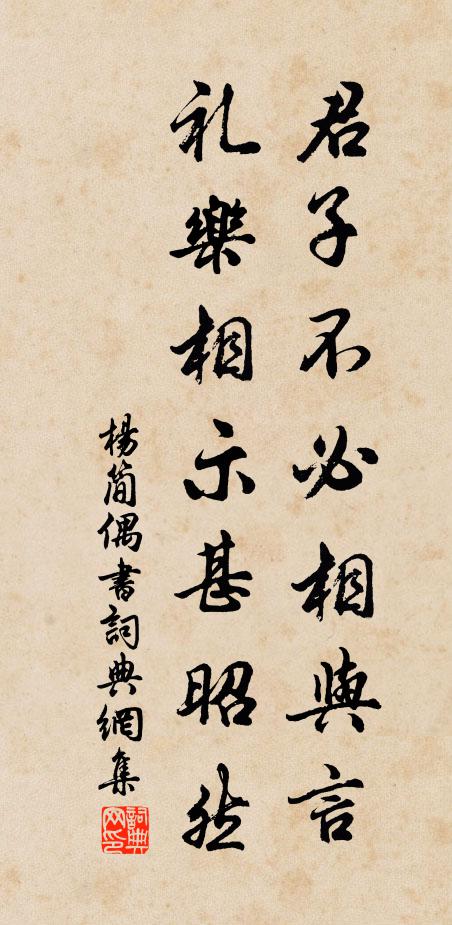 君子不必相與言
礼樂相示甚昭然
楊简偶書詞典網集
詞典网印